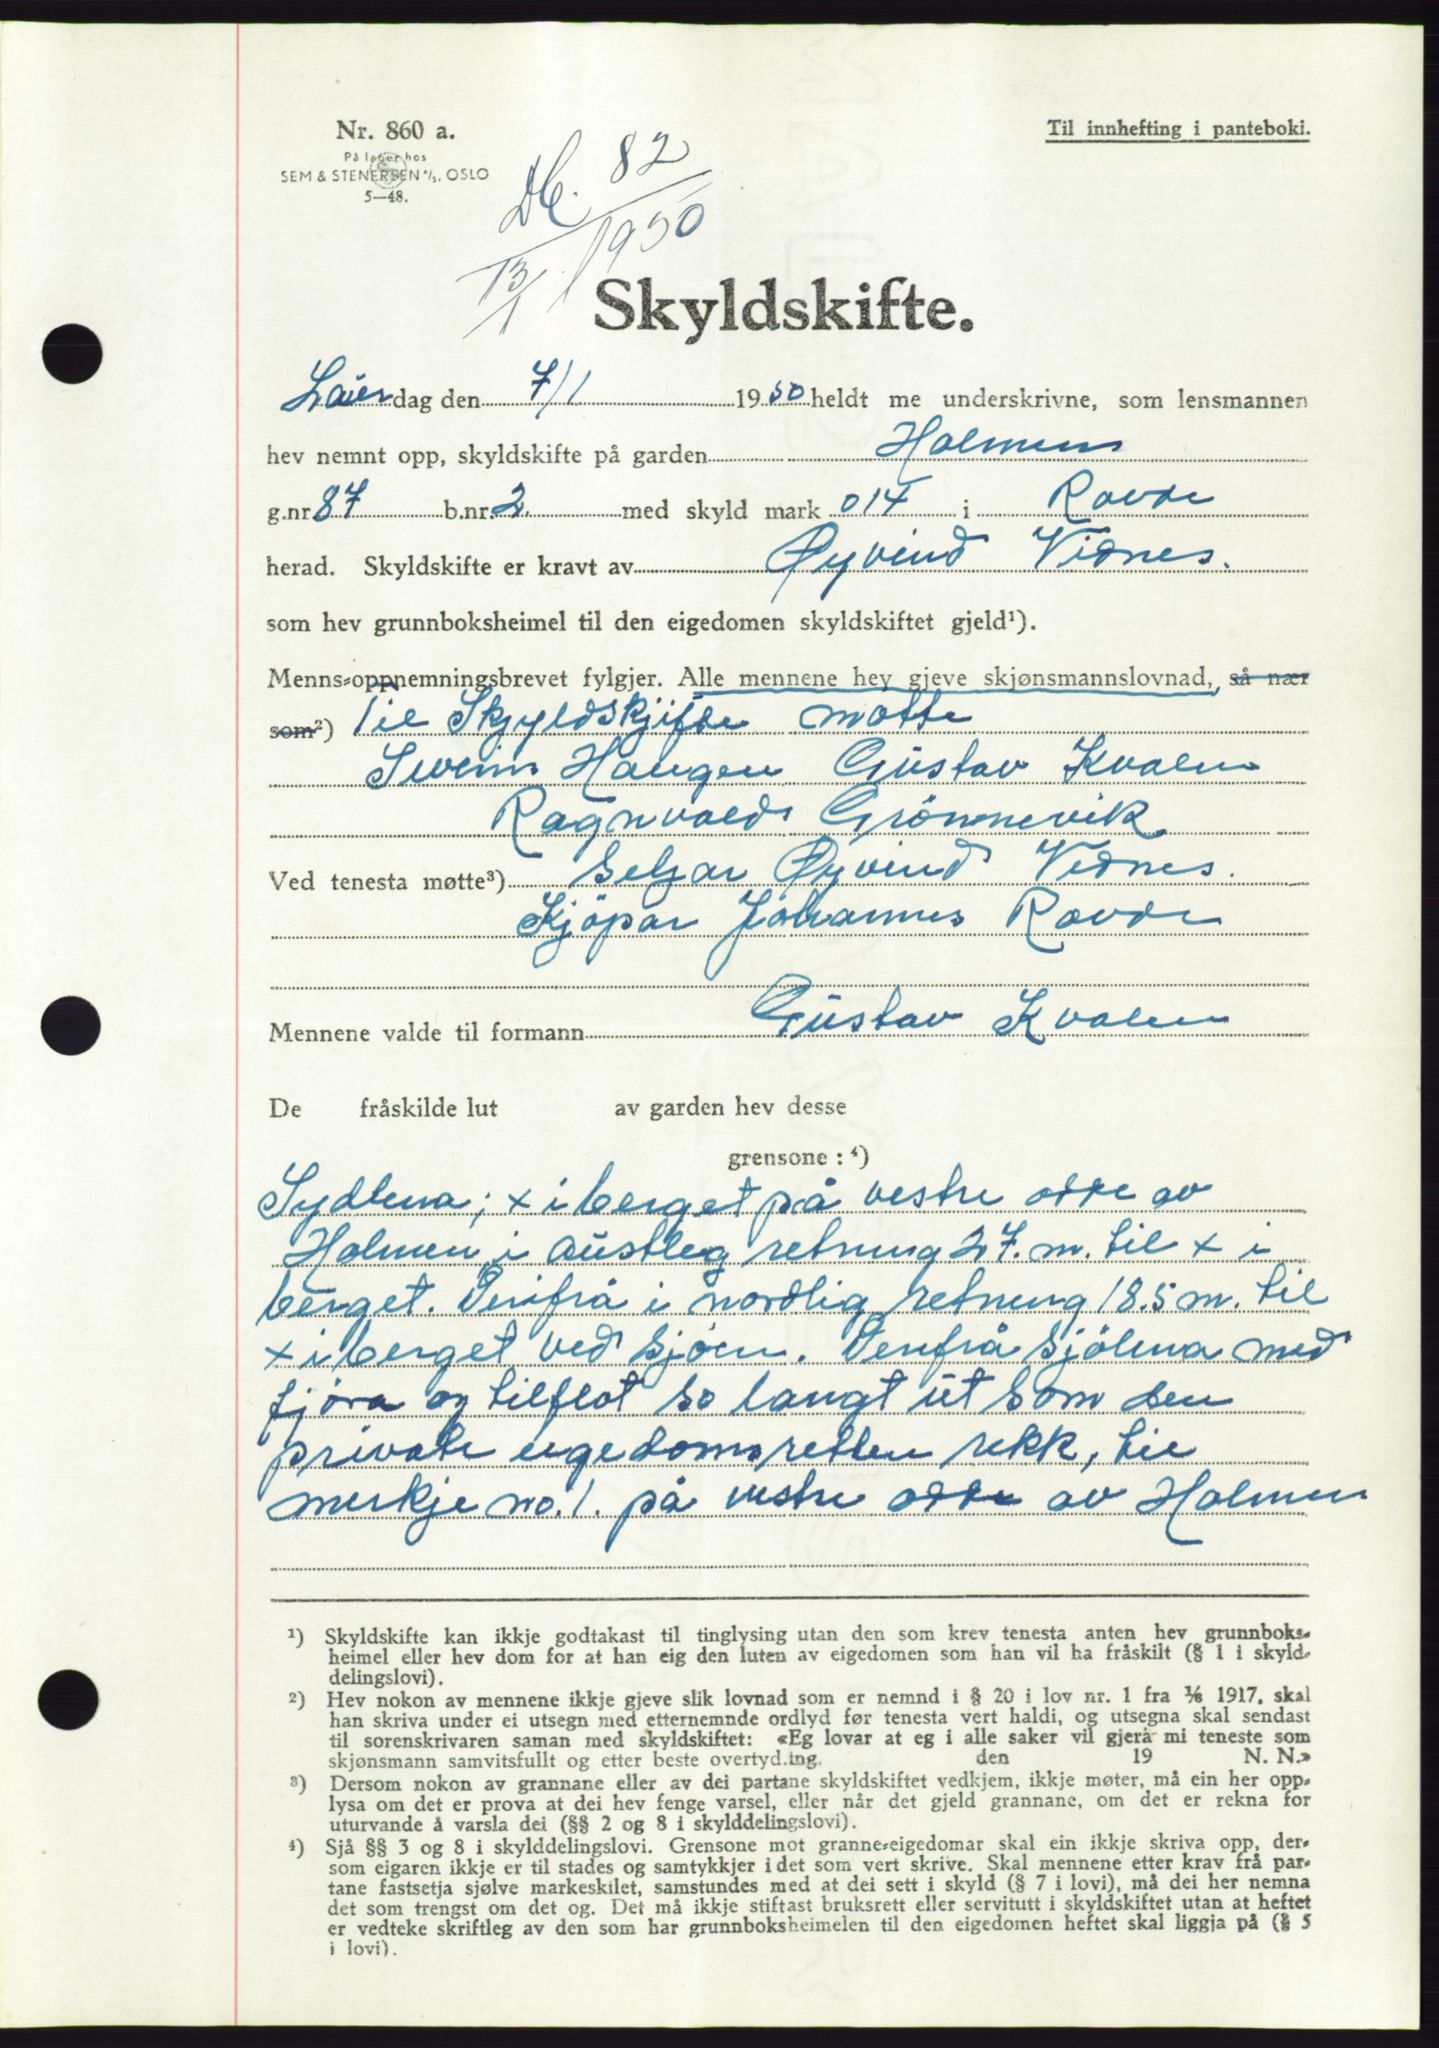 Nr. 860 a.
På lager hos
SEM & STENERSEN A/S, OSLO
5—48.
Til innhefting i panteboki.
82
13/1 1950
Skyldskifte.
Lauerdag den 7/1 1950 heldt me underskrivne, som lensmannen
hev nemnt opp, skyldskifte på garden Holmen
g.nr. 87 b.nr. 2. med skyld mark 014 i Rovde
herad. Skyldskifte er kravt av Øyvind Vidnes.
som hev grunnboksheimel til den eigedomen skyldskiftet gjeld¹).
Menns-oppnemningsbrevet fylgjer. Alle mennene hev gjeve skjønsmannslovnad, så nær
som²) Til Skjyldskjifte møtte
Haugen Gustav Kvalen
Ragnvald Grönnevik
Ved tenesta møtte³) Seljar Øyvind Vidnes.
Kjöpar Johannes Rovde
Mennene valde til formann Gustav Kvalen
De fråskilde lut av garden hev desse
grensone : ⁴)
Sydlina; x i berget på vestre odde av
Holmen i austleg retning 27. m. til x i
berget. Derifrå i nordlig retning 18.5 m. til
x i berget ved sjøen. Derifrå sjölina med
fjöra og tilflot so langt ut som den
private eigedomsretten rekk, til
merkje no. 1. på vestre odde av Holmen
¹) Skyldskifte kan ikkje godtakast til tinglysing utan den som krev tenesta anten hev grunnboks-
heimel eller hev dom for at han eig den luten av eigedomen som han vil ha fråskilt (§ 1 i skyld-
delingslovi).
²) Hev nokon av mennene ikkje gjeve slik lovnad som er nemnd i § 20 i lov nr. 1 fra 1/6 1917, skal
han skriva under ei utsegn med etternemnde ordlyd før tenesta vert haldi, og utsegna skal sendast
til sorenskrivaren saman med skyldskiftet: «Eg lovar at eg i alle saker vil gjera mi teneste som
skjønsmann samvitsfullt og etter beste overtyding. den 19 N. N.»
³) Dersom nokon av grannane eller av dei partane skyldskiftet vedkjem, ikkje møter, må ein her opp-
lysa om det er prova at dei hev fenge varsel, eller når det gjeld grannane, om det er rekna for
uturvande å varsla dei (§§ 2 og 8 i skylddelingslovi).
⁴) Sjå §§ 3 og 8 i skylddelingslovi. Grensone mot granne-eigedomar skal ein ikkje skriva opp, der-
som eigaren ikkje er til stades og samtykkjer i det som vert skrive. Skal mennene etter krav frå par-
tane fastsetja sjølve markeskilet, samstundes med at dei sett i skyld (§ 7 i lovi), må dei her nemna
det som trengst om det og. Det må ikkje stiftast bruksrett eller servitutt i skyldskiftet utan at heftet
er vedteke skriftleg av den som har grunnboksheimelen til den eigedomen heftet skal liggja på (§ 5
i lovi).